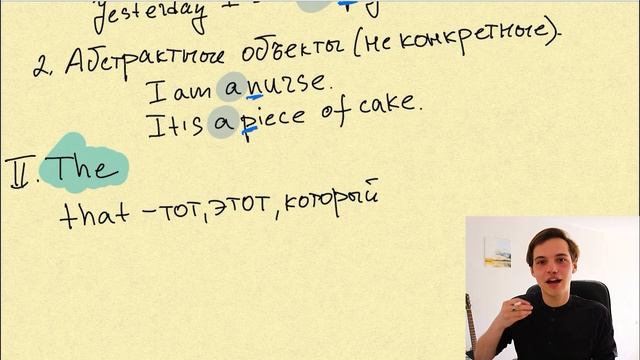 Yesterday I
2. Абстрактные объекты (не конкретные).
I am a nurse.
It is a piece of cake.
II. The
that – тот, этот, который